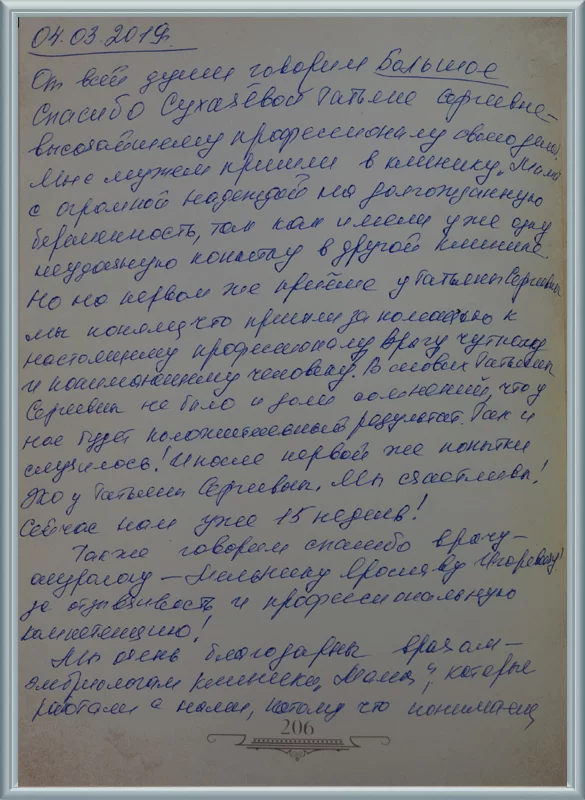 04.03.2019г.
От всей души говорим Большое
спасибо Сухачёвой Татьяне Сергеевне-
высочайшему профессионалу своего дела!
Мы с мужем пришли в клинику „Мама"
с огромной надеждой на долгожданную
беременность, так как имели уже одну
неудачную попытку в другой клинике.
Но на первом же приёме у Татьяны Сергеевны
мы поняли, что пришли за помощью к
настоящему профессионалу, врачу, чуткому
и понимающему человеку. В словах Татьяны
Сергеевны не было и доли сомнений, что у
нас будет положительный результат. Так и
случилось! И после первой же попытки
ЭКО у Татьяны Сергеевны, мы счастливы!
Сейчас нам уже 15 недель!
Также говорим спасибо врачу-
андрологу - Мельнику Ярославу Игоревичу
за отзывчивость и профессиональную
компетенцию!
Мы очень благодарны врачам-
эмбриологам клиники „Мама", которые
работали с нами, потому что понимаем,
206